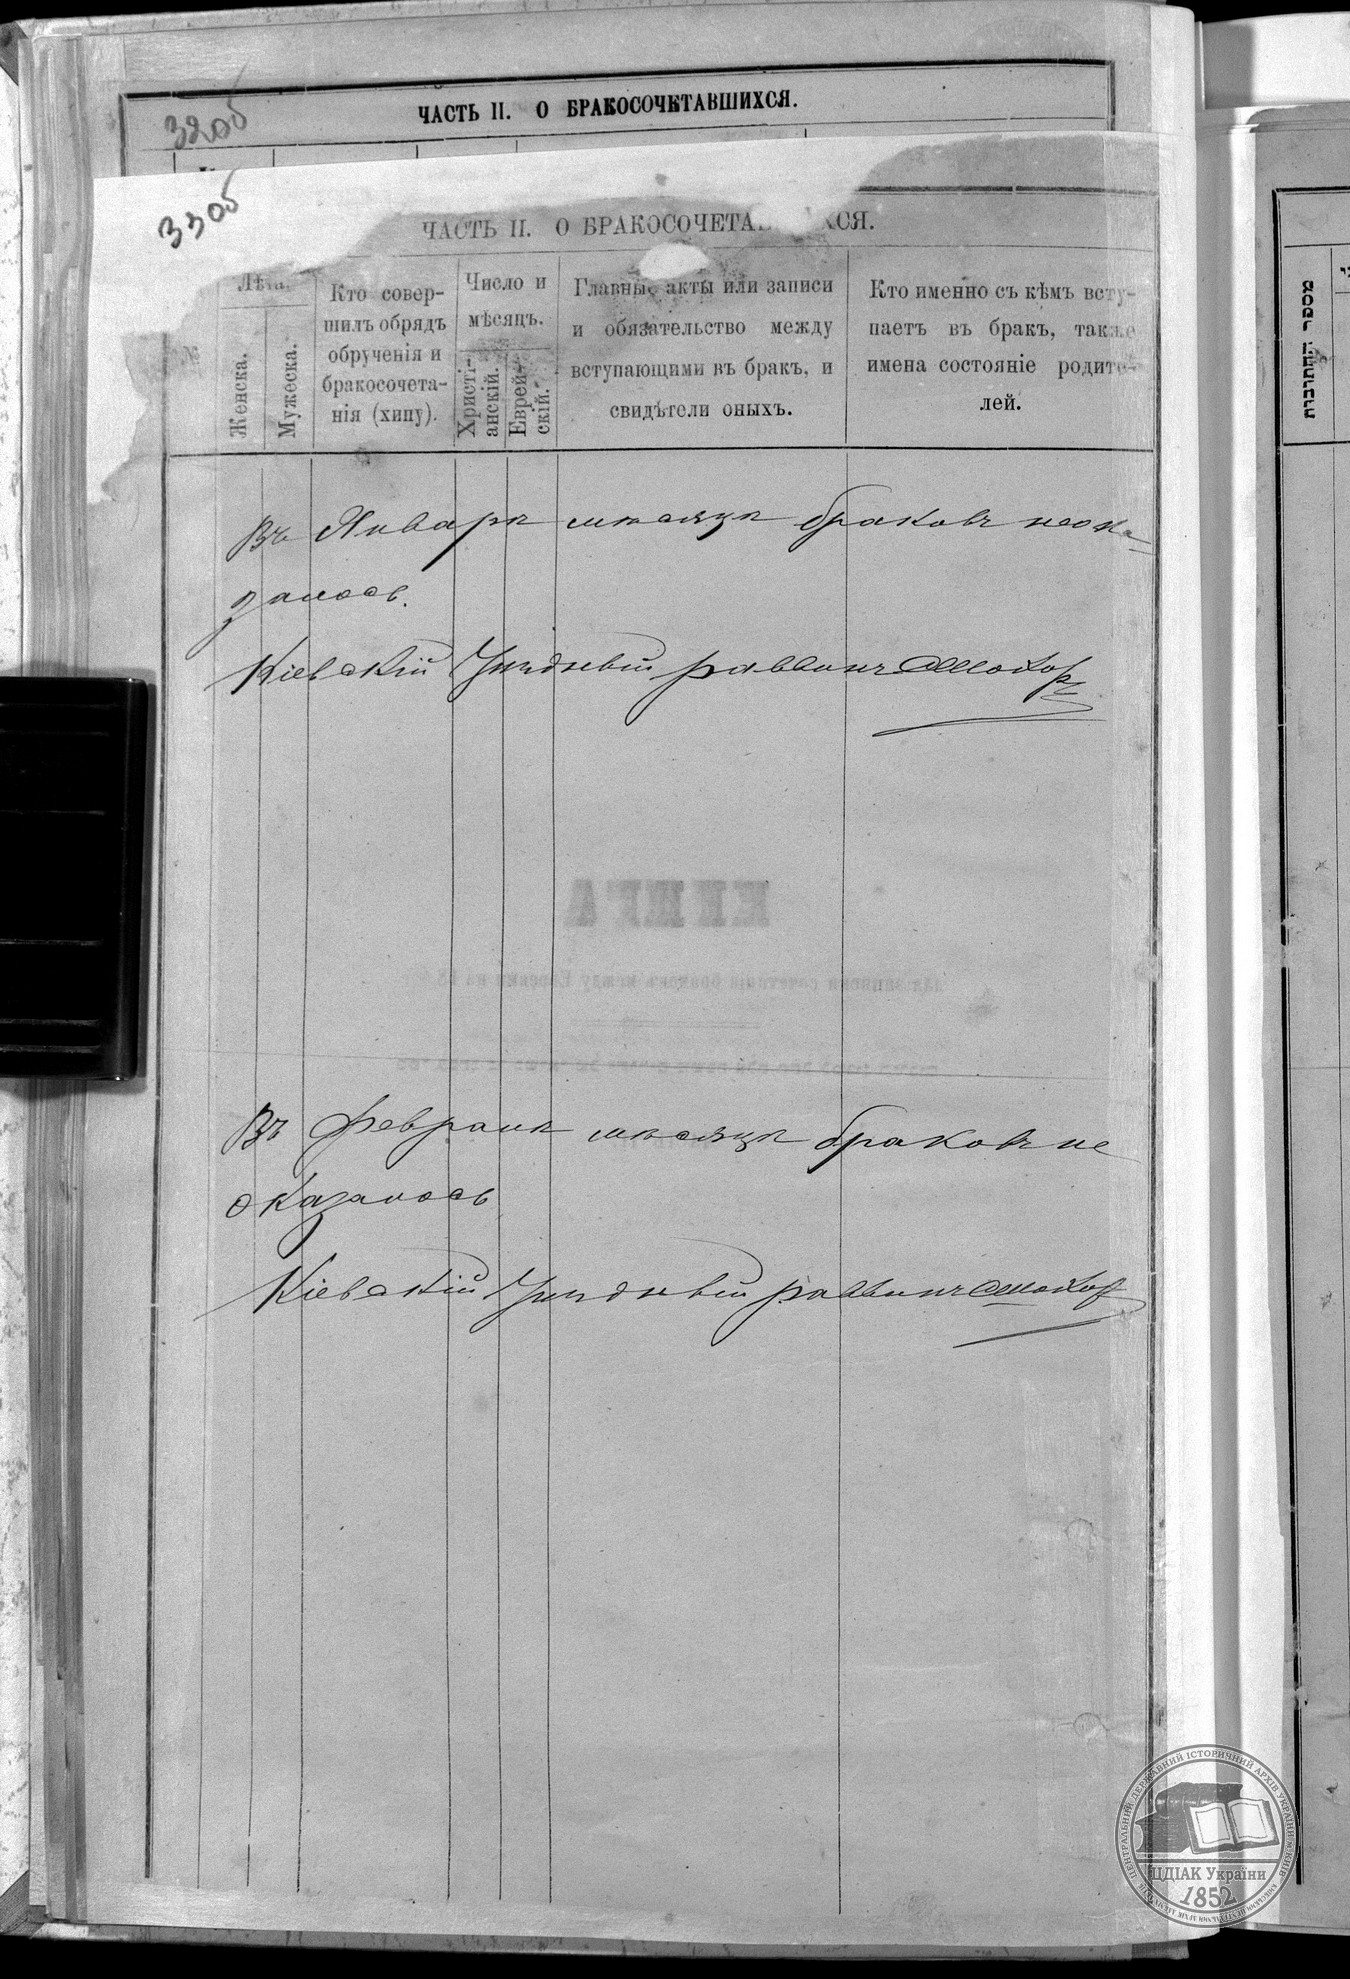 ЧАСТЬ II. О БРАКОСОЧЕТАВШИХСЯ.
32об
33об
ЧАСТЬ II. О БРАКОСОЧЕТА ХСЯ.
Лѣта.
Женска.
Мужеска.
Кто совер-
шилъ обрядъ
обрученія и
бракосочета-
нія (хипу).
Число и
мѣсяцъ.
Христі-
анскій.
Еврей-
скій.
Главные акты или записи
и обязательство между
вступающими въ бракъ, и
свидѣтели оныхъ.
Кто именно съ кѣмъ всту-
паетъ въ бракъ, также
имена состояніе родите-
лей.
Въ Январѣ мѣсяцѣ браковъ неока-
залось.
Кіевскій Уѣздный раввинъ
Въ Февралѣ мѣсяцѣ браковъ не
оказалось
Кіевскій Уѣздный раввинъ
КНИГА
מספר המתחברות
ЦЕНТРАЛЬНИЙ ДЕРЖАВНИЙ ІСТОРИЧНИЙ АРХІВ УКРАЇНИ М.КИЇВ
ЦДІАК України
1852